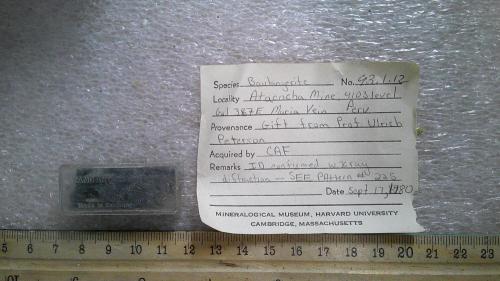 Species Boulangerite No. 93.1.12
Locality Atacocha Mine, 4103 level
Gal 387E Maria Vein Peru
Provenance Gift from Prof Ulrich
Petersen
Acquired by CAF
Remarks ID confirmed w. Xray
diffraction - SEE Pattern # 225
Date Sept 17, 1980
MINERALOGICAL MUSEUM, HARVARD UNIVERSITY
CAMBRIDGE, MASSACHUSETTS
Made in Germany
5 6 7 8 9 10 11 12 13 14 15 16 17 18 19 20 21 22 23